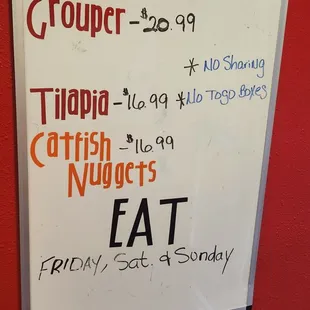 Grouper - $20.99
* No Sharing
Tilapia - $16.99 * No Togo Boxes
Catfish - $16.99
Nuggets
EAT
FRIDAY, Sat. & Sunday